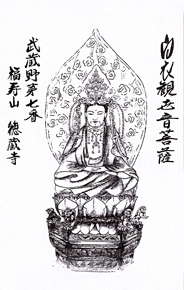 白衣観世音菩薩
武蔵野第七番
福寿山 徳蔵寺